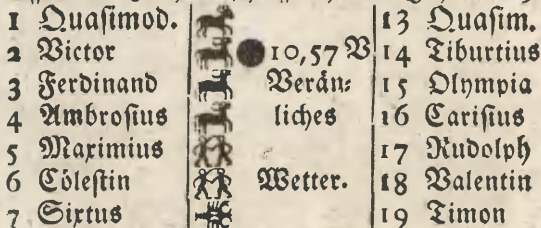 1 Quaſimod. 13 Quaſim.
2 Victor 10,57 V 14 Tiburtius
3 Ferdinand Verän⸗ 15 Olympia
4 Ambroſius liches 16 Cariſius
5 Maximius 17 Rudolph
6 Cöleſtin Wetter. 18 Valentin
7 Sixtus 19 Timon